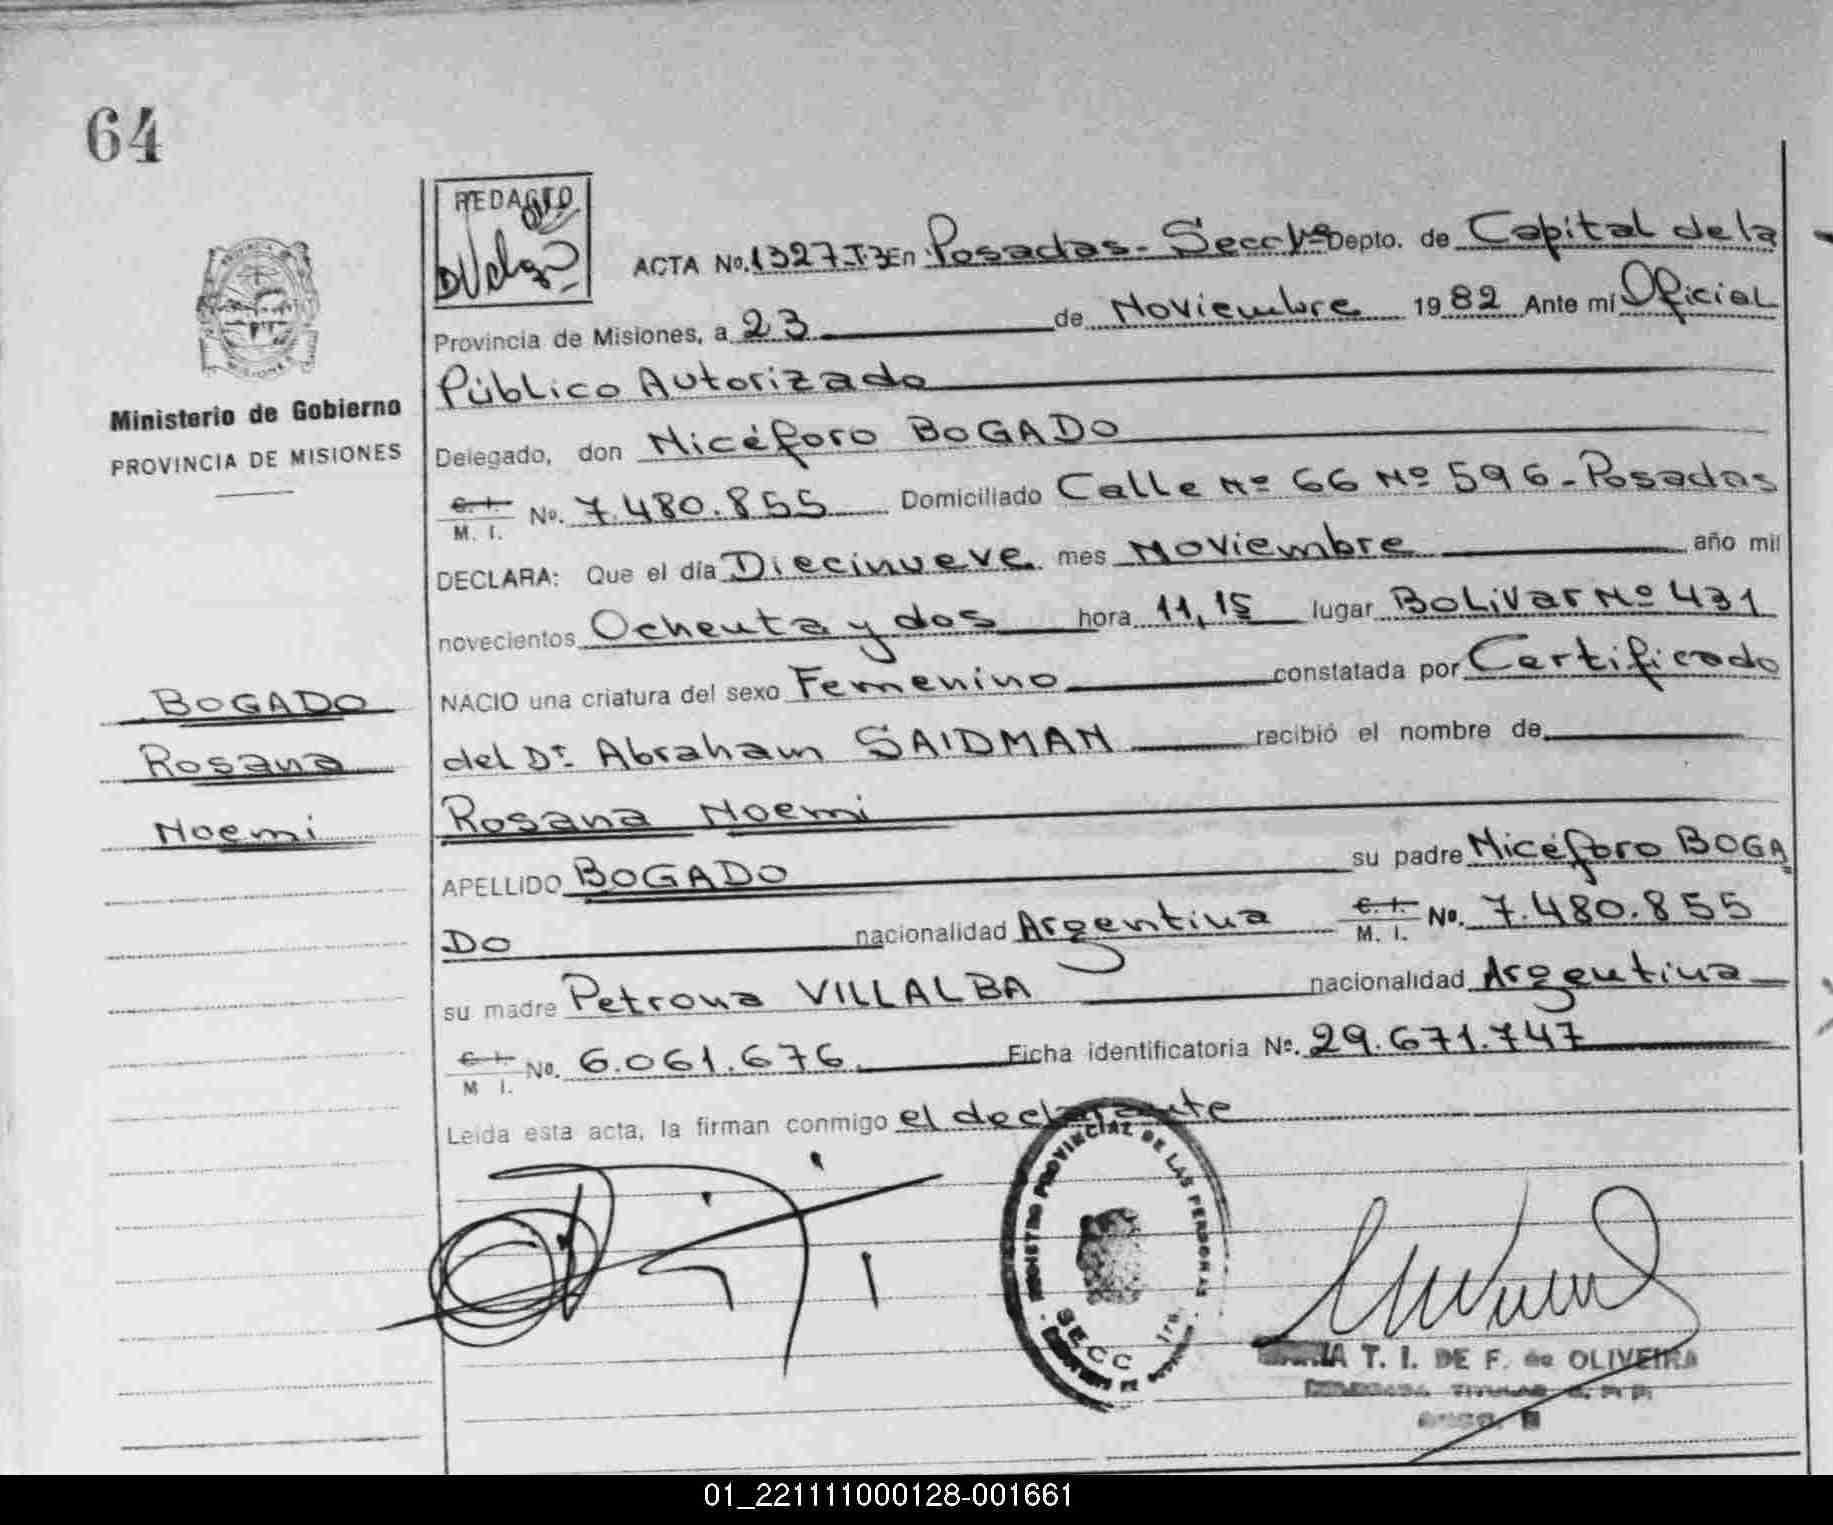 64
REDACTO
ACTA No. 1327-T-3 En Posadas - Secc 1ª Depto. de Capital de la
Provincia de Misiones, a 23 de Noviembre 1982 Ante mí Oficial
Público Autorizado
Ministerio de Gobierno
PROVINCIA DE MISIONES
Delegado, don Nicéforo BOGADO
C. I. M. I. No. 7.480.855 Domiciliado Calle Nº 66 Nº 596 - Posadas
DECLARA: Que el día Diecinueve mes Noviembre año mil
novecientos Ochenta y dos hora 11,15 lugar Bolivar Nº 431
NACIO una criatura del sexo Femenino constatada por Certificado
del Dr. Abraham SAIDMAN recibió el nombre de
Rosana Noemi
BOGADO
Rosana
Noemi
APELLIDO BOGADO su padre Nicéforo BOGA
DO nacionalidad Argentina C. I. M. I. No. 7.480.855
su madre Petrona VILLALBA nacionalidad Argentina
C. I. M I. No. 6.061.676. Ficha identificatoria No. 29.671.747
Leída esta acta, la firman conmigo el declarante
REGISTRO PROVINCIAL DE LAS PERSONAS
SECC 1ra.
T. I. DE F. de OLIVEIRA
TITULAR
01_221111000128-001661